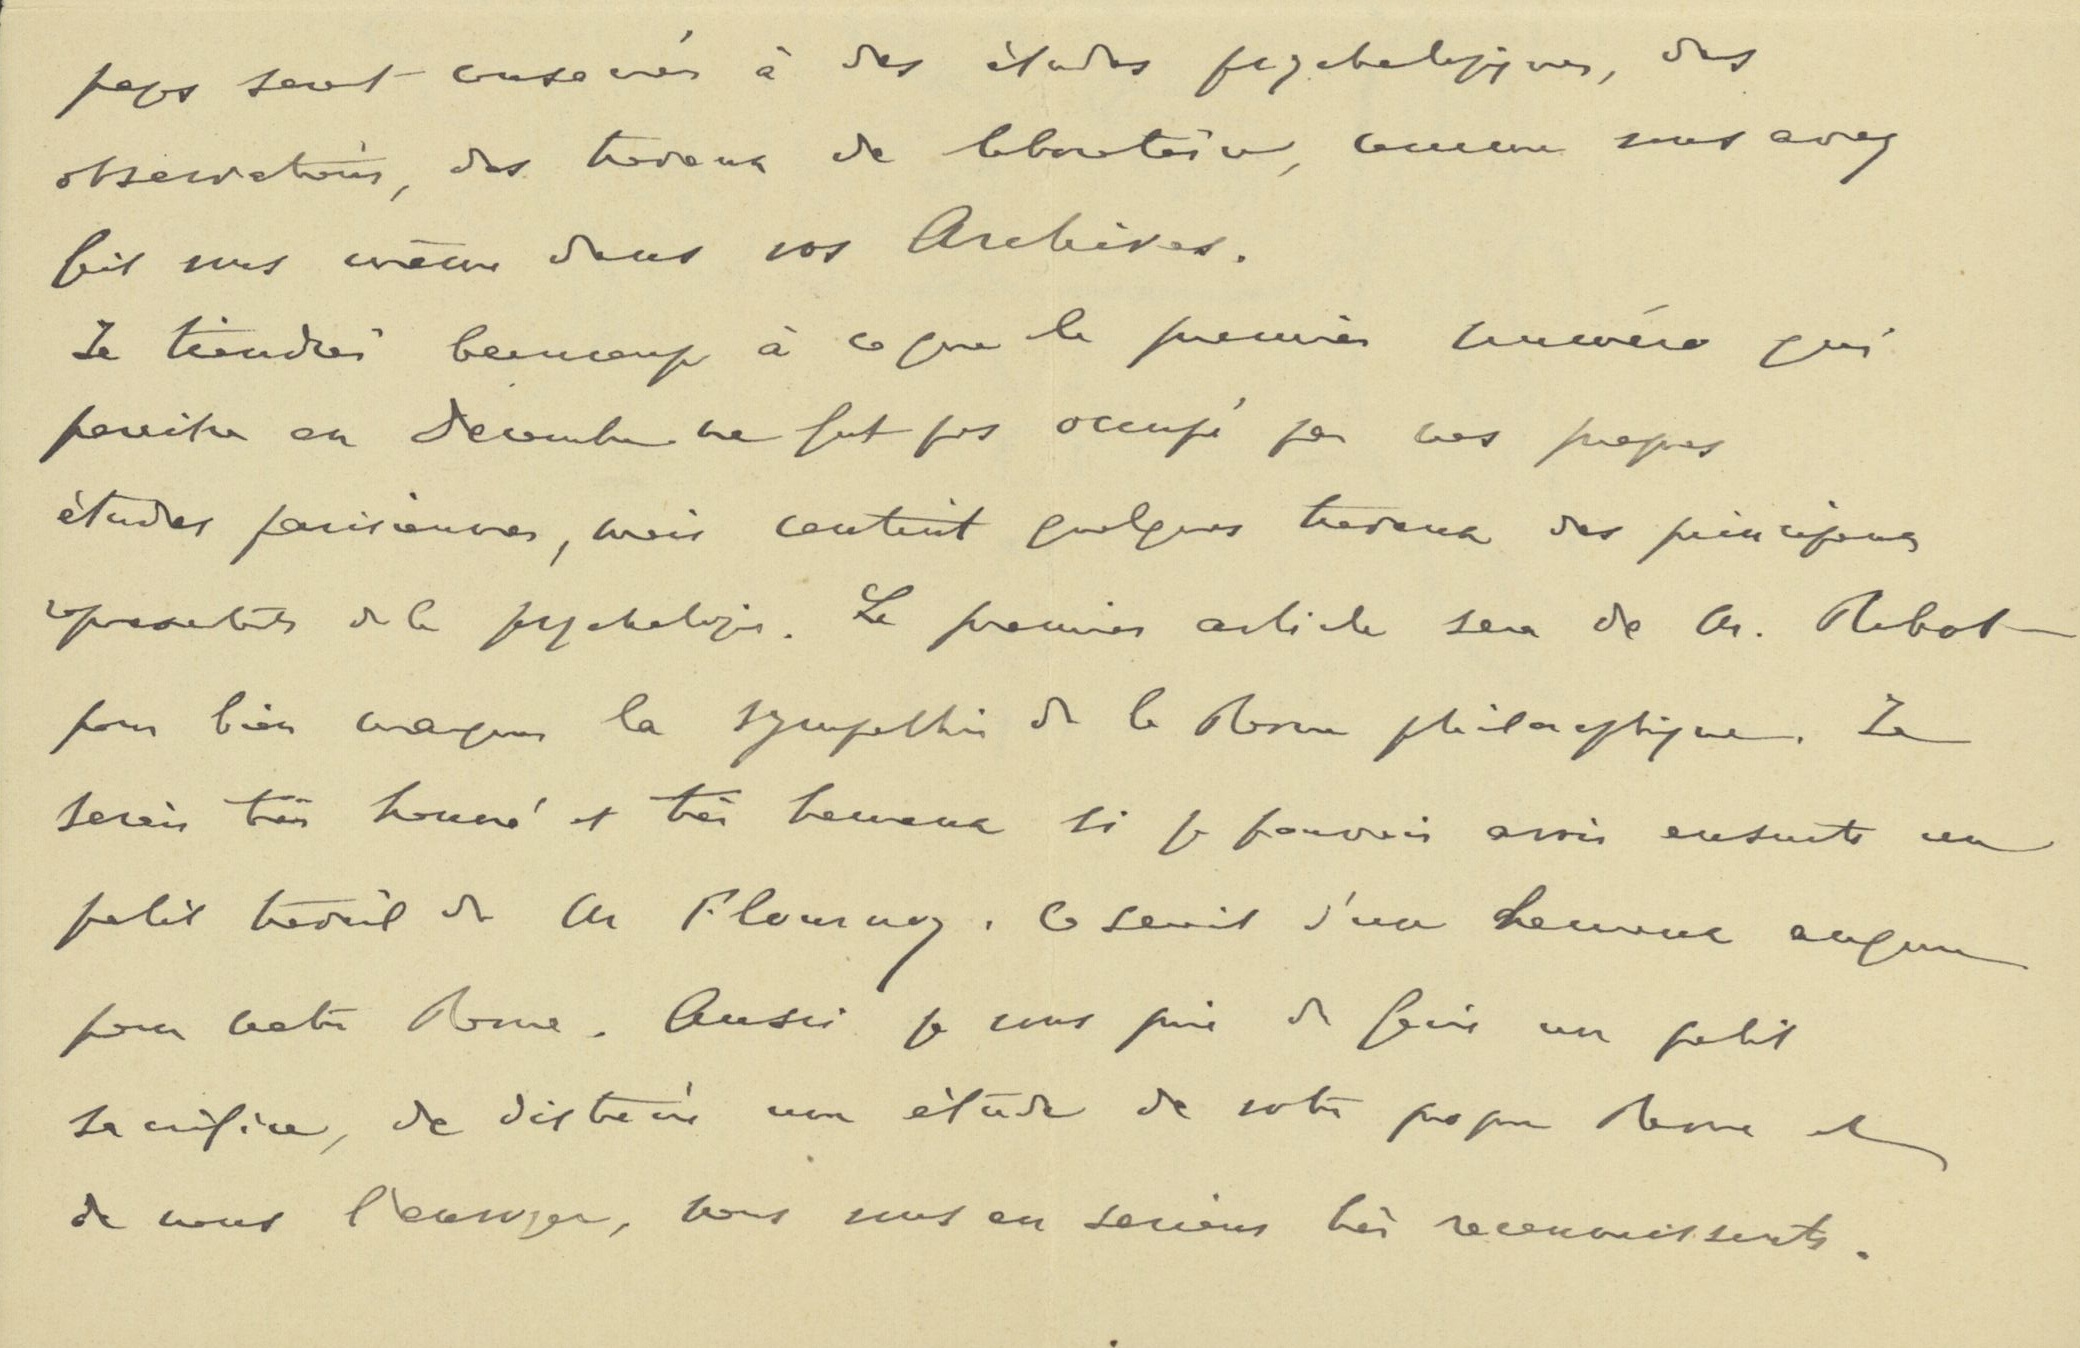 pages sont consacrées à des études psychologiques, des
observations, des travaux de laboratoire, comme vous avez
fait vous même dans vos Archives.
Je tiendrai beaucoup à ce que le premier numéro qui
paraitra en Décembre ne fut pas occupé par nos propres
études parisiennes, mais contint quelques travaux des principaux
représentants de la psychologie. Le premier article sera de M. Ribot
pour bien marquer la sympathie de la Revue philosophique. Je
serais très honoré et très heureux si je pouvais avoir ensuite un
petit travail de M Flournoy. Ce serait d'un heureux augure
pour notre Revue. Aussi je vous prie de faire un petit
sacrifice, de distraire une étude de votre propre Revue et
de nous l'envoyer, nous vous en serions très reconnaissants.